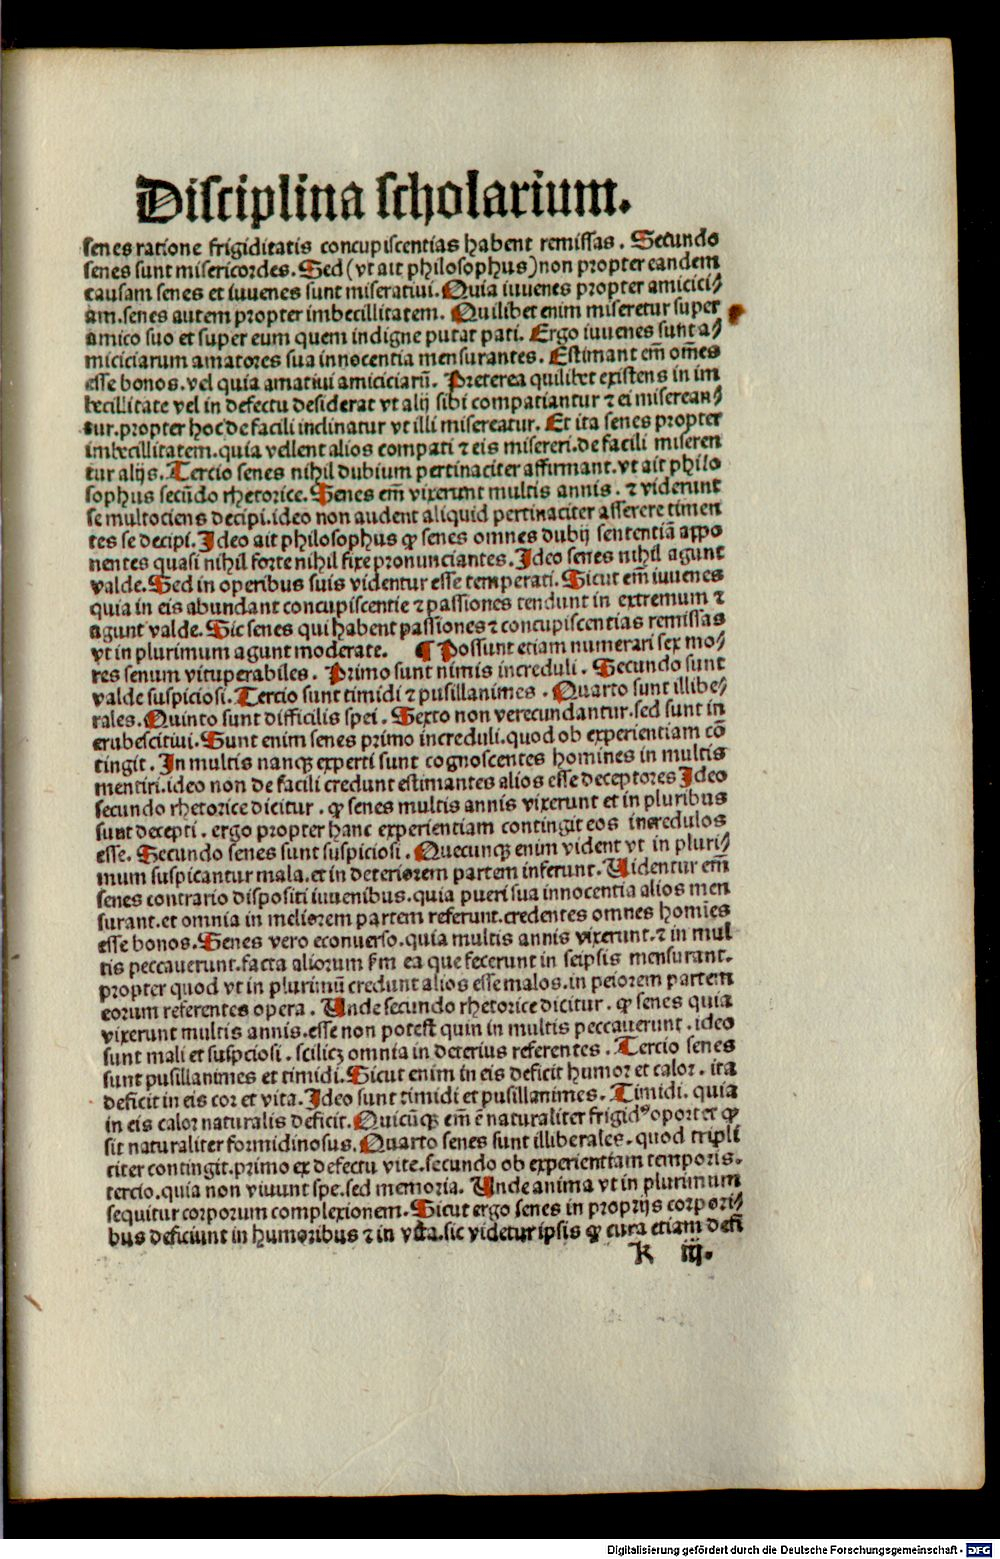 Disciplina scholarium.
senes ratione frigiditatis concupiscentias habent remissas. Secundo
senes sunt misericordes. Sed (vt ait philosophus) non propter eandem
causam senes et iuuenes sunt miseratiui. Quia iuuenes propter amicici⸗
am. senes autem propter imbecillitatem. Quilibet enim miseretur super
amico suo et super eum quem indigne putat pati. Ergo iuuenes sunt a⸗
miciciarum amatores sua innocentia mensurantes. Estimant em̄ om̄es
esse bonos. vel quia amatiui amiciciarū. Preterea quilibet existens in im
becillitate vel in defectu desiderat vt alij sibi compatiantur ⁊ ei miserean⸗
tur. propter hoc de facili inclinatur vt illi misereatur. Et ita senes propter
imbecillitatem. quia vellent alios compati ⁊ eis misereri. de facili miseren
tur alijs. Tercio senes nihil dubium pertinaciter affirmant. vt ait philo
sophus secūdo rhetorice. Senes em̄ vixerunt multis annis. ⁊ viderunt
se multociens decipi. ideo non audent aliquid pertinaciter asserere timen
tes se decipi. Ideo ait philosophus ꝙ senes omnes dubij sententiā appo
nentes quasi nihil forte nihil fixe pronunciantes. Ideo senes nihil agunt
valde. Sed in operibus suis videntur esse temperati. Sicut em̄ iuuenes
quia in eis abundant concupiscentie ⁊ passiones tendunt in extremum ⁊
agunt valde. Sic senes qui habent passiones ⁊ concupiscentias remissas
vt in plurimum agunt moderate. ¶ Possunt etiam numerari sex mo⸗
res senum vituperabiles. Primo sunt nimis increduli. Secundo sunt
valde suspiciosi. Tercio sunt timidi ⁊ pusillanimes. Quarto sunt illibe⸗
rales. Quinto sunt difficilis spei. Sexto non verecundantur. sed sunt in
erubescitiui. Sunt enim senes primo increduli. quod ob experientiam cō
tingit. In multis nanqꝫ experti sunt cognoscentes homines in multis
mentiri. ideo non de facili credunt estimantes alios esse deceptores Ideo
secundo rhetorice dicitur. ꝙ senes multis annis vixerunt et in pluribus
sunt decepti. ergo propter hanc experientiam contingit eos incredulos
esse. Secundo senes sunt suspiciosi. Quecunqꝫ enim vident vt in pluri⸗
mum suspicantur mala. et in deteriorem partem inferunt. Uidentur em̄
senes contrario dispositi iuuenibus. quia pueri sua innocentia alios men
surant. et omnia in meliorem partem referunt. credentes omnes homīes
esse bonos. Senes vero econuerso. quia multis annis vixerunt. ⁊ in mul
tis peccauerunt. facta aliorum ẜm ea que fecerunt in seipsis mensurant.
propter quod vt in plurimū credunt alios esse malos. in peiorem partem
eorum referentes opera. Unde secundo rhetorice dicitur. ꝙ senes quia
vixerunt multis annis. esse non potest quin in multis peccauerunt. ideo
sunt mali et suspciosi. scilicꝫ omnia in deterius referentes. Tercio senes
sunt pusillanimes et timidi. Sicut enim in eis deficit humor et calor. ita
deficit in eis cor et vita. Ideo sunt timidi et pusillanimes. Timidi. quia
in eis calor naturalis deficit. Quicūqꝫ em̄ ē naturaliter frigidꝰ oportet ꝙ
sit naturaliter formidinosus. Quarto senes sunt illiberales. quod tripli
citer contingit. primo ex defectu vite. secundo ob experientiam temporis.
tercio. quia non viuunt spe. sed memoria. Unde anima vt in plurimum
sequitur corporum complexionem. Sicut ergo senes in proprijs corpori⸗
bus deficiunt in humoribus ⁊ in vita. sic videtur ipsis ꝙ cura etiam defi
K iij.
Digitalisierung gefördert durch die Deutsche Forschungsgemeinschaft - DFG